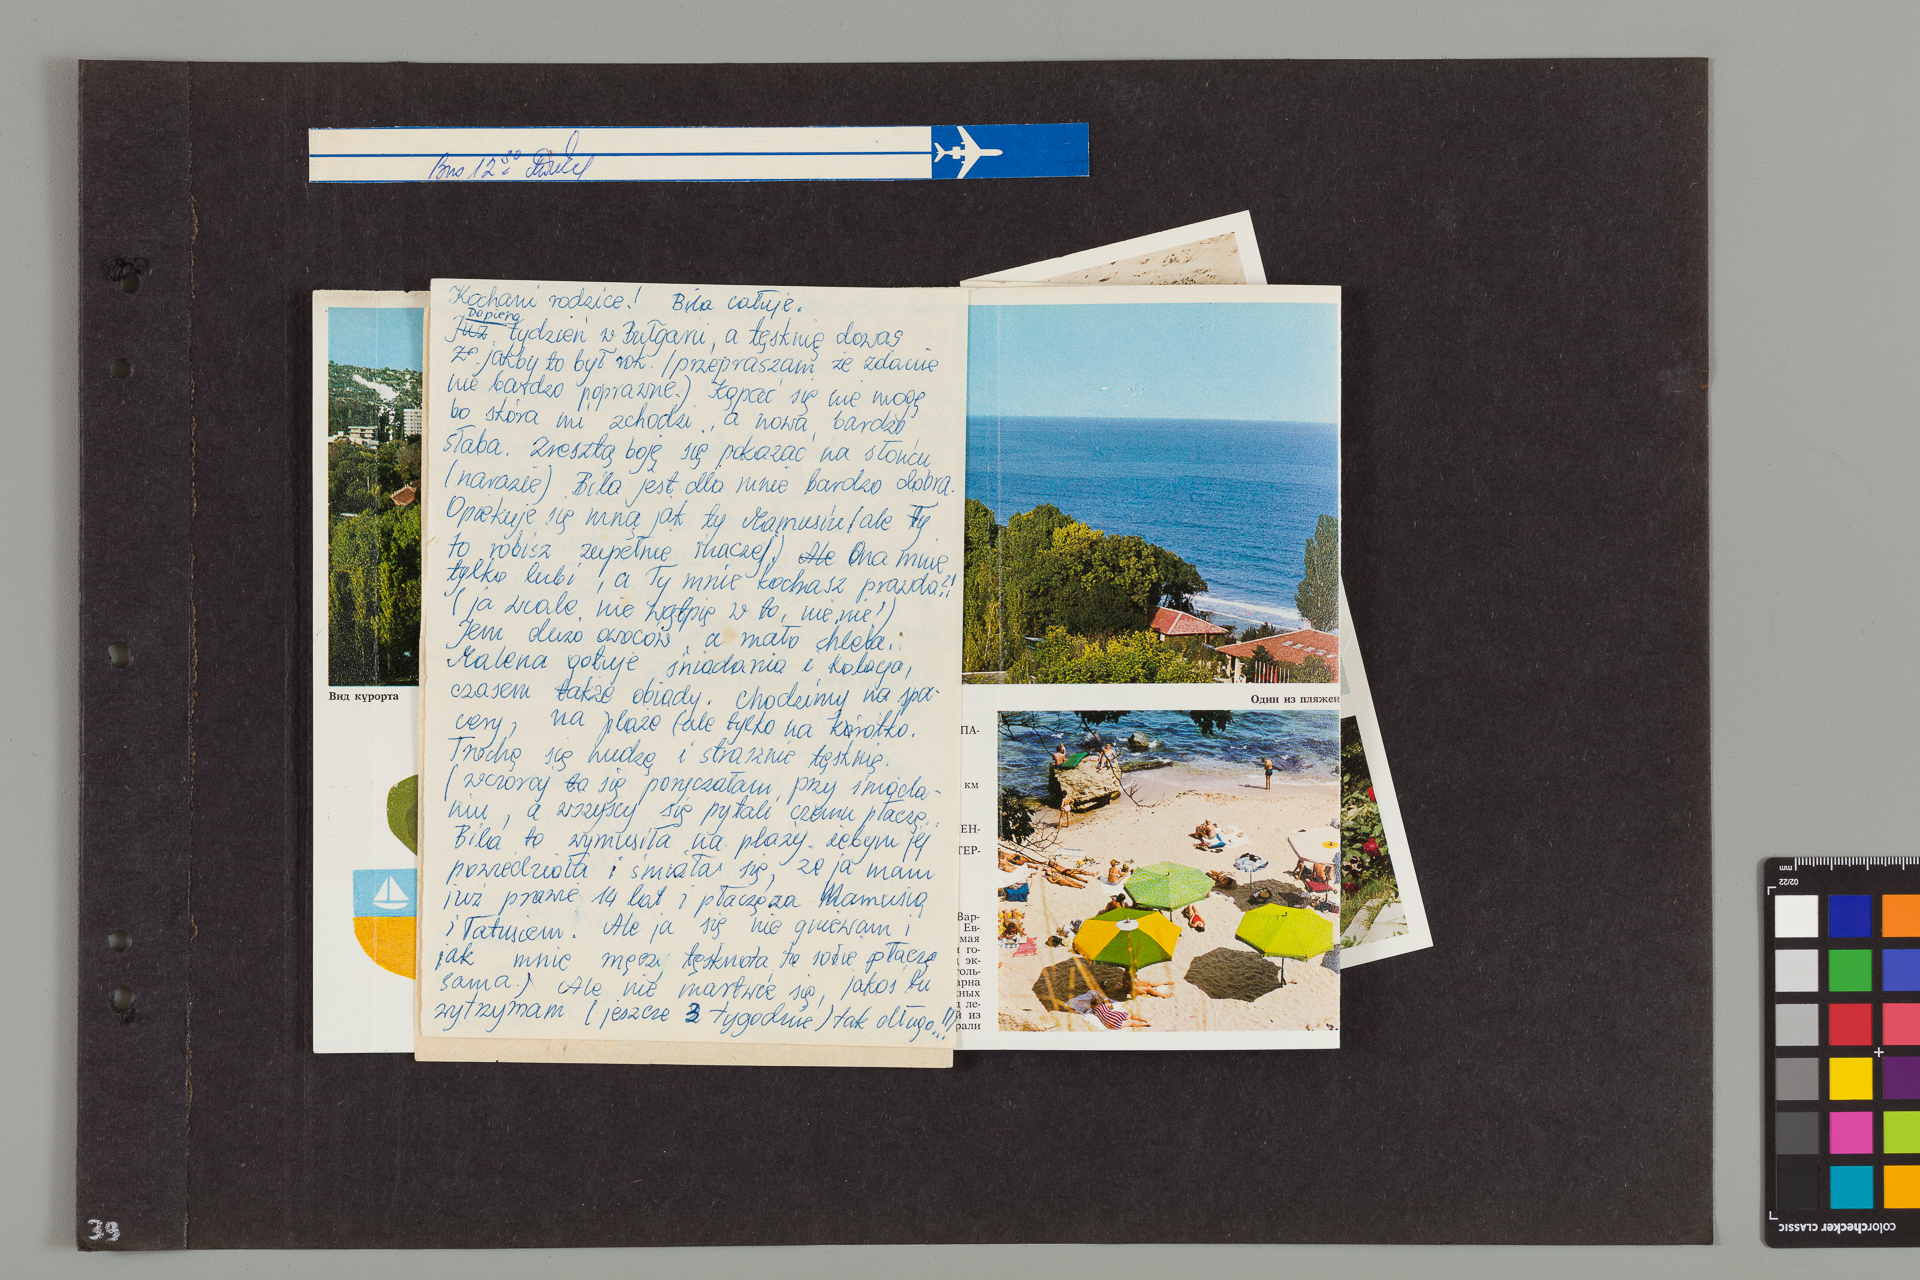 Bus 12 30
Kochani rodzice! Bila całuje.
Dopiero
Już tydzień w Bułgarii, a tęsknię dowas
że jakby to był rok. (przepraszam że zdanie
nie bardzo poprawne.) Kąpać się nie mogę
bo skóra mi schodzi, a nowa bardzo
słaba. Zresztą boję się pokazać na słońcu
(narazie) Bila jest dla mnie bardzo dobra.
Opiekuje się mną jak ty Mamusiu (ale Ty
to robisz zupełnie inaczej) Ale Ona mnie
tylko lubi, a Ty mnie kochasz prawda?!!
(ja wcale nie wątpię w to, nie, nie!)
Jem dużo owoców, a mało chleba.
Malena gotuje śniadania i kolacje,
czasem także obiady. Chodzimy na spa-
cery, na plaże (ale tylko na krótko.
Trochę się nudzę i strasznie tęsknię.
(wczoraj to się poryczałam przy śniada-
niu, a wszyscy się pytali czemu płaczę..
Bila to wymusiła na plaży żebym jej
powiedziała i śmiała się, że ja mam
już prawie 14 lat i płaczę za Mamusią
i Tatusiem. Ale ja się nie gniewam i
jak mnie męczy tęsknota to sobie płaczę
sama.) Ale nie martwcie się, jakoś tu
wytrzymam (jeszcze 3 tygodnie) tak długo..!!)
Вид курорта
Один из пляжей
ПА-
км
ЕН-
ТЕР-
Вар-
Ев-
мая
го-
эк-
толь-
арна
ных
ле-
й из
рали
39
mm
02/22
colorchecker CLASSIC